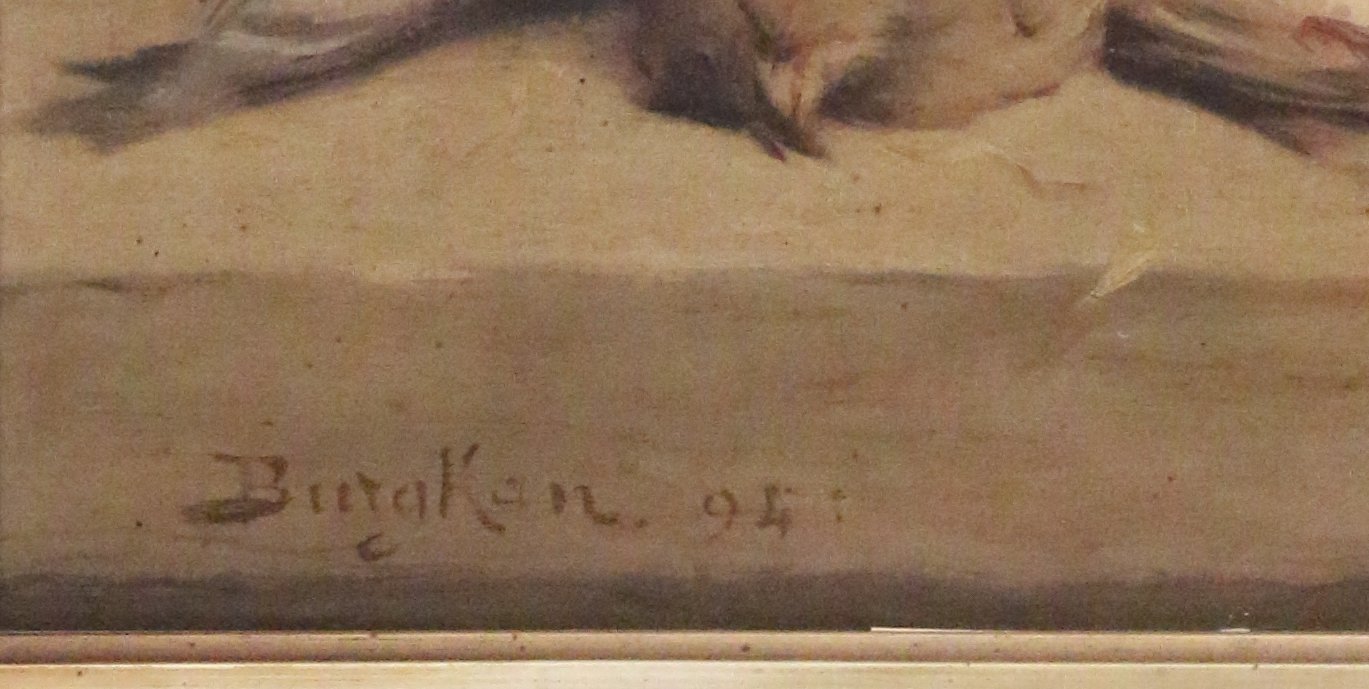 Burgkan. 94: